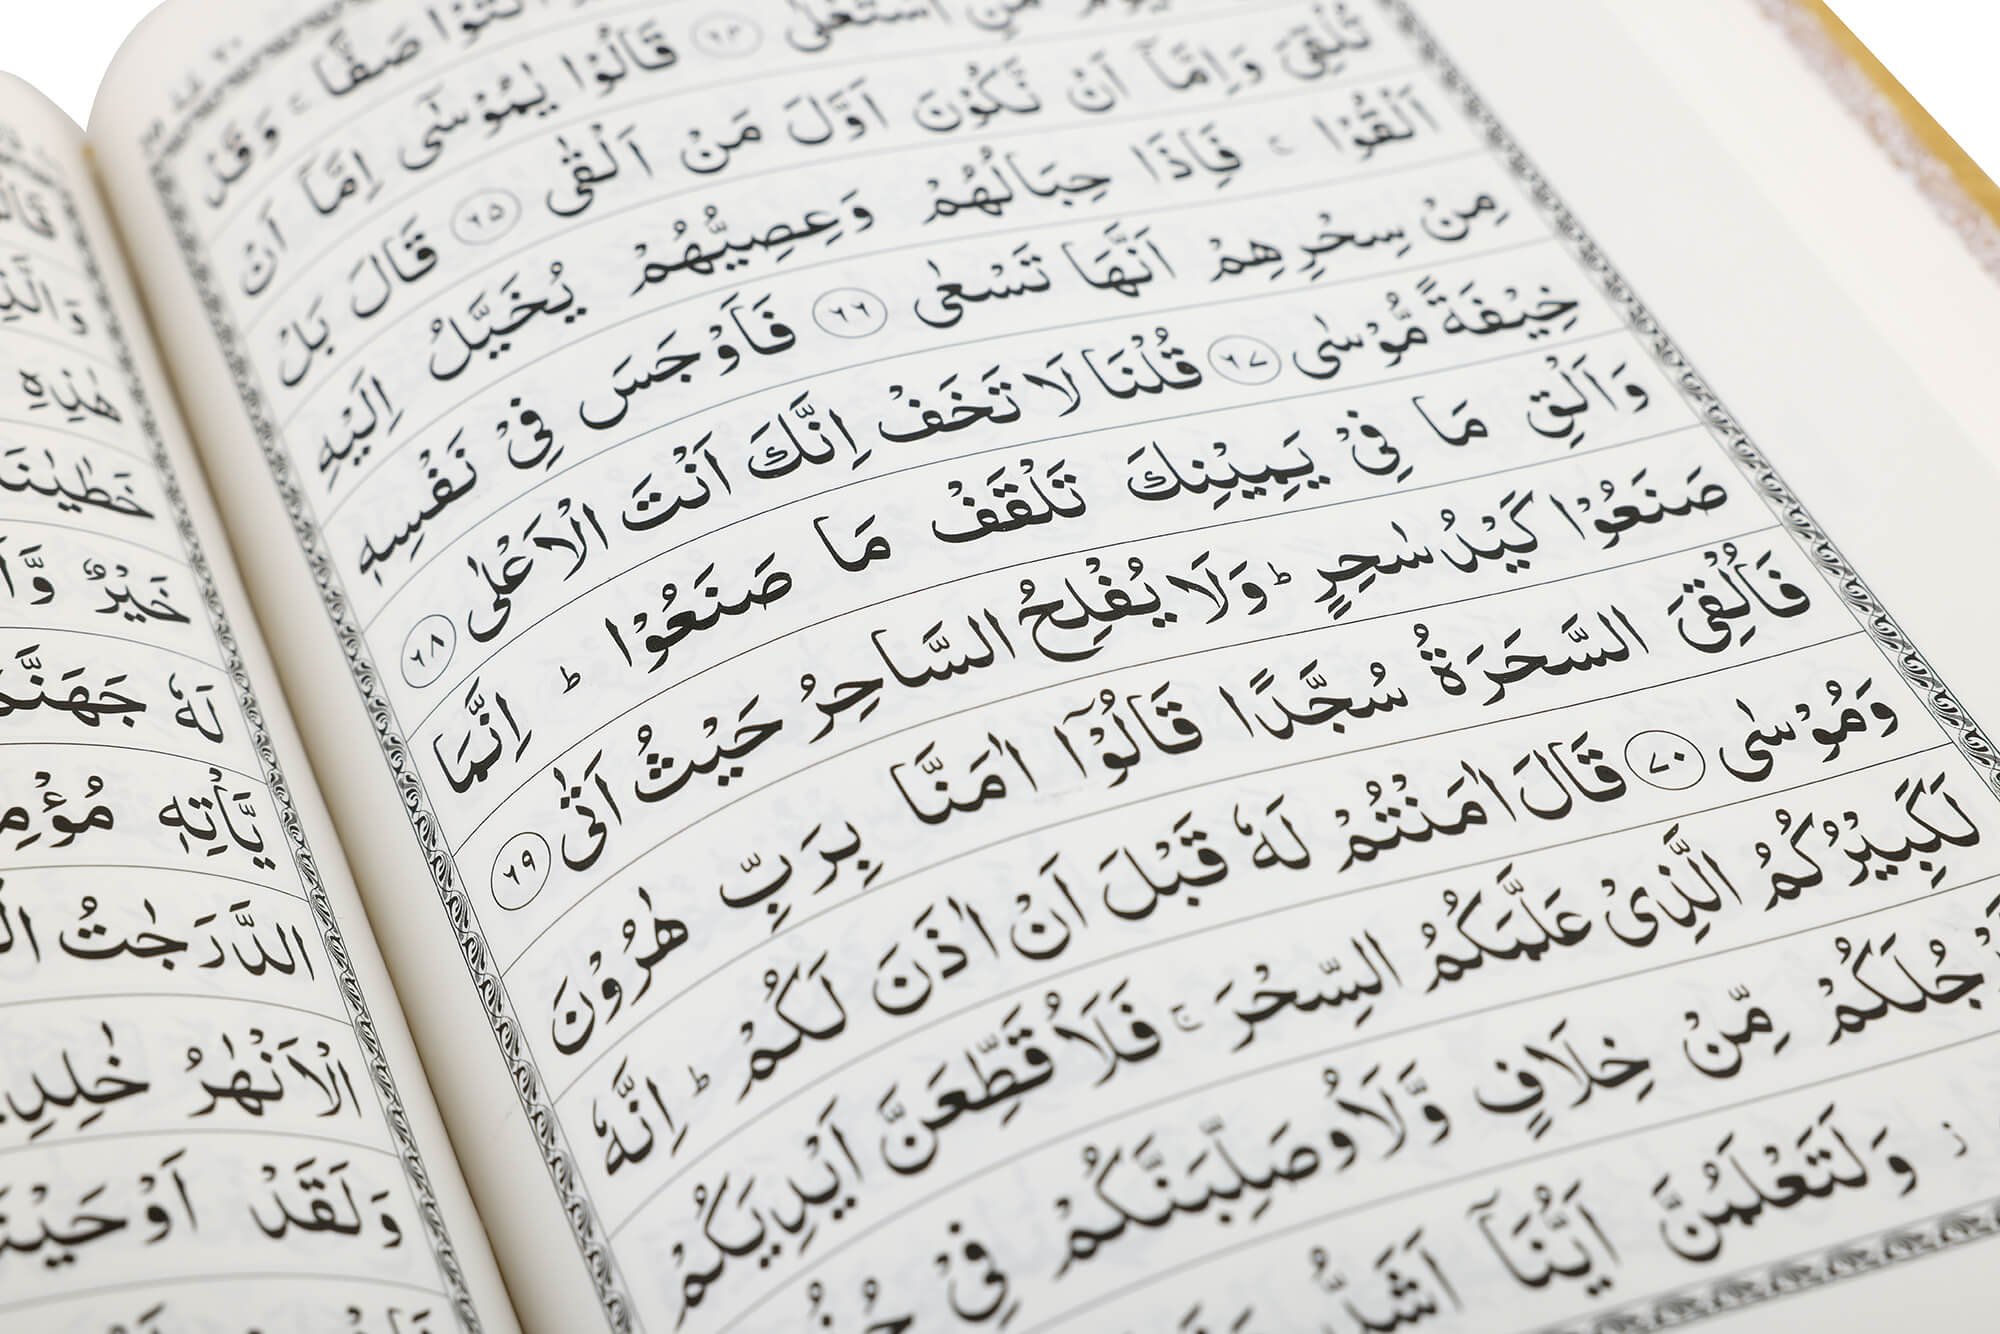 ائْتُوْا صَفًّا ۚ وَقَدْ
مَنِ اسْتَعْلٰى ٦٤ قَالُوْا يٰمُوْسٰٓى اِمَّآ اَنْ
تُلْقِيَ وَاِمَّآ اَنْ نَّكُوْنَ اَوَّلَ مَنْ اَلْقٰى ٦٥ قَالَ بَلْ
اَلْقُوْا ۚ فَاِذَا حِبَالُهُمْ وَعِصِيُّهُمْ يُخَيَّلُ اِلَيْهِ
مِنْ سِحْرِهِمْ اَنَّهَا تَسْعٰى ٦٦ فَاَوْجَسَ فِيْ نَفْسِهٖ
خِيْفَةً مُّوْسٰى ٦٧ قُلْنَا لَا تَخَفْ اِنَّكَ اَنْتَ الْاَعْلٰى ٦٨
وَاَلْقِ مَا فِيْ يَمِيْنِكَ تَلْقَفْ مَا صَنَعُوْا ؕ اِنَّمَا
صَنَعُوْا كَيْدُ سٰحِرٍ ؕ وَلَا يُفْلِحُ السَّاحِرُ حَيْثُ اَتٰى ٦٩
فَاُلْقِيَ السَّحَرَةُ سُجَّدًا قَالُوْٓا اٰمَنَّا بِرَبِّ هٰرُوْنَ
وَمُوْسٰى ٧٠ قَالَ اٰمَنْتُمْ لَهٗ قَبْلَ اَنْ اٰذَنَ لَكُمْ ؕ اِنَّهٗ
لَكَبِيْرُكُمُ الَّذِيْ عَلَّمَكُمُ السِّحْرَ ۚ فَلَاُقَطِّعَنَّ اَيْدِيَكُمْ
جُلَكُمْ مِّنْ خِلَافٍ وَّلَاُوصَلِّبَنَّكُمْ فِيْ
وَلَتَعْلَمُنَّ اَيُّنَآ اَشَدُّ
وَالَّذِ
هٰذِهِ
خَطٰيٰنَا
خَيْرٌ وَّاَ
لَهٗ جَهَنَّمَ
يَّاْتِهٖ مُؤْمِ
الدَّرَجٰتُ الْ
الْاَنْهٰرُ خٰلِدِيْ
وَلَقَدْ اَوْحَيْنَ